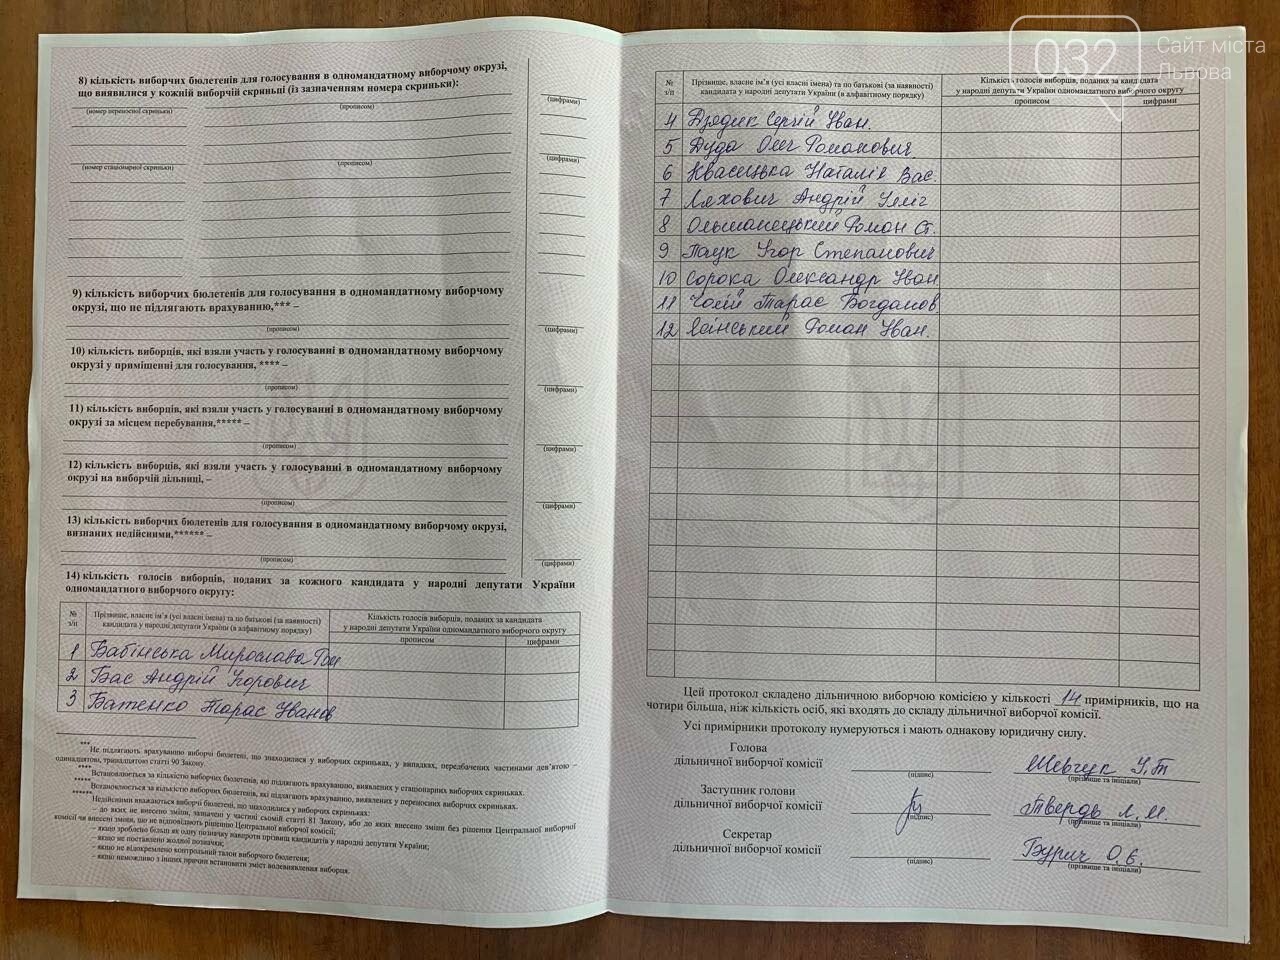 032
Сайт міста
Львова
8) кількість виборчих бюлетенів для голосування в одномандатному виборчому окрузі,
що виявилися у кожній виборчій скриньці (із зазначенням номера скриньки):
(номер переносної скриньки) (прописом) (цифрами)
(номер стаціонарної скриньки) (прописом) (цифрами)
9) кількість виборчих бюлетенів для голосування в одномандатному виборчому
окрузі, що не підлягають врахуванню,*** –
(прописом) (цифрами)
10) кількість виборців, які взяли участь у голосуванні в одномандатному виборчому
окрузі у приміщенні для голосування, **** –
(прописом) (цифрами)
11) кількість виборців, які взяли участь у голосуванні в одномандатному виборчому
окрузі за місцем перебування,***** –
(прописом) (цифрами)
12) кількість виборців, які взяли участь у голосуванні в одномандатному виборчому
окрузі на виборчій дільниці, –
(прописом) (цифрами)
13) кількість виборчих бюлетенів для голосування в одномандатному виборчому окрузі,
визнаних недійсними,****** –
(прописом) (цифрами)
14) кількість голосів виборців, поданих за кожного кандидата у народні депутати України
одномандатного виборчого округу:
№ з/п Прізвище, власне ім’я (усі власні імена) та по батькові (за наявності)
кандидата у народні депутати України (в алфавітному порядку)
Кількість голосів виборців, поданих за кандидата
у народні депутати України одномандатного виборчого округу
прописом цифрами
1 Бабінська Мирослава Ром
2 Бас Андрій Ігорович
3 Батенко Тарас Іванов
***
Не підлягають врахуванню виборчі бюлетені, що знаходилися у виборчих скриньках, у випадках, передбачених частинами дев’ятою –
одинадцятою, тринадцятою статті 90 Закону.
****
Встановлюється за кількістю виборчих бюлетенів, які підлягають врахуванню, виявлених у стаціонарних виборчих скриньках.
*****
Встановлюється за кількістю виборчих бюлетенів, які підлягають врахуванню, виявлених у переносних виборчих скриньках.
******
Недійсними вважаються виборчі бюлетені, що знаходилися у виборчих скриньках:
– до яких не внесено зміни, зазначено у частині сьомій статті 81 Закону, або до яких внесено зміни без рішення Центральної виборчої
комісії чи внесені зміни, що не відповідають рішенню Центральної виборчої комісії;
– якщо зроблено більш як одну позначку навпроти прізвищ кандидатів у народні депутати України;
– якщо не поставлено жодної позначки;
– якщо не відокремлено контрольний талон виборчого бюлетеня;
– якщо неможливо з інших причин встановити зміст волевиявлення виборця.
№ з/п Прізвище, власне ім’я (усі власні імена) та по батькові (за наявності)
кандидата у народні депутати України (в алфавітному порядку)
Кількість голосів виборців, поданих за кандидата
у народні депутати України одномандатного виборчого округу
прописом цифрами
4 Дзядик Сергій Іван.
5 Дуда Олег Романович
6 Квасецька Наталія Вас.
7 Ляхович Андрій
8 Ольшанецький Роман Ст.
9 Паук Ігор Степанович
10 Сорока Олександр Іван
11 Чолій Тарас Богданов
12 Ясінський Роман Іван.
Цей протокол складено дільничною виборчою комісією у кількості 14 примірників, що на
чотири більша, ніж кількість осіб, які входять до складу дільничної виборчої комісії.
Усі примірники протоколу нумеруються і мають однакову юридичну силу.
Голова
дільничної виборчої комісії Шевчук І.Т
(підпис) (прізвище та ініціали)
Заступник голови
дільничної виборчої комісії Твердь Л.М.
(підпис) (прізвище та ініціали)
Секретар
дільничної виборчої комісії Бурич О.Є.
(підпис) (прізвище та ініціали)